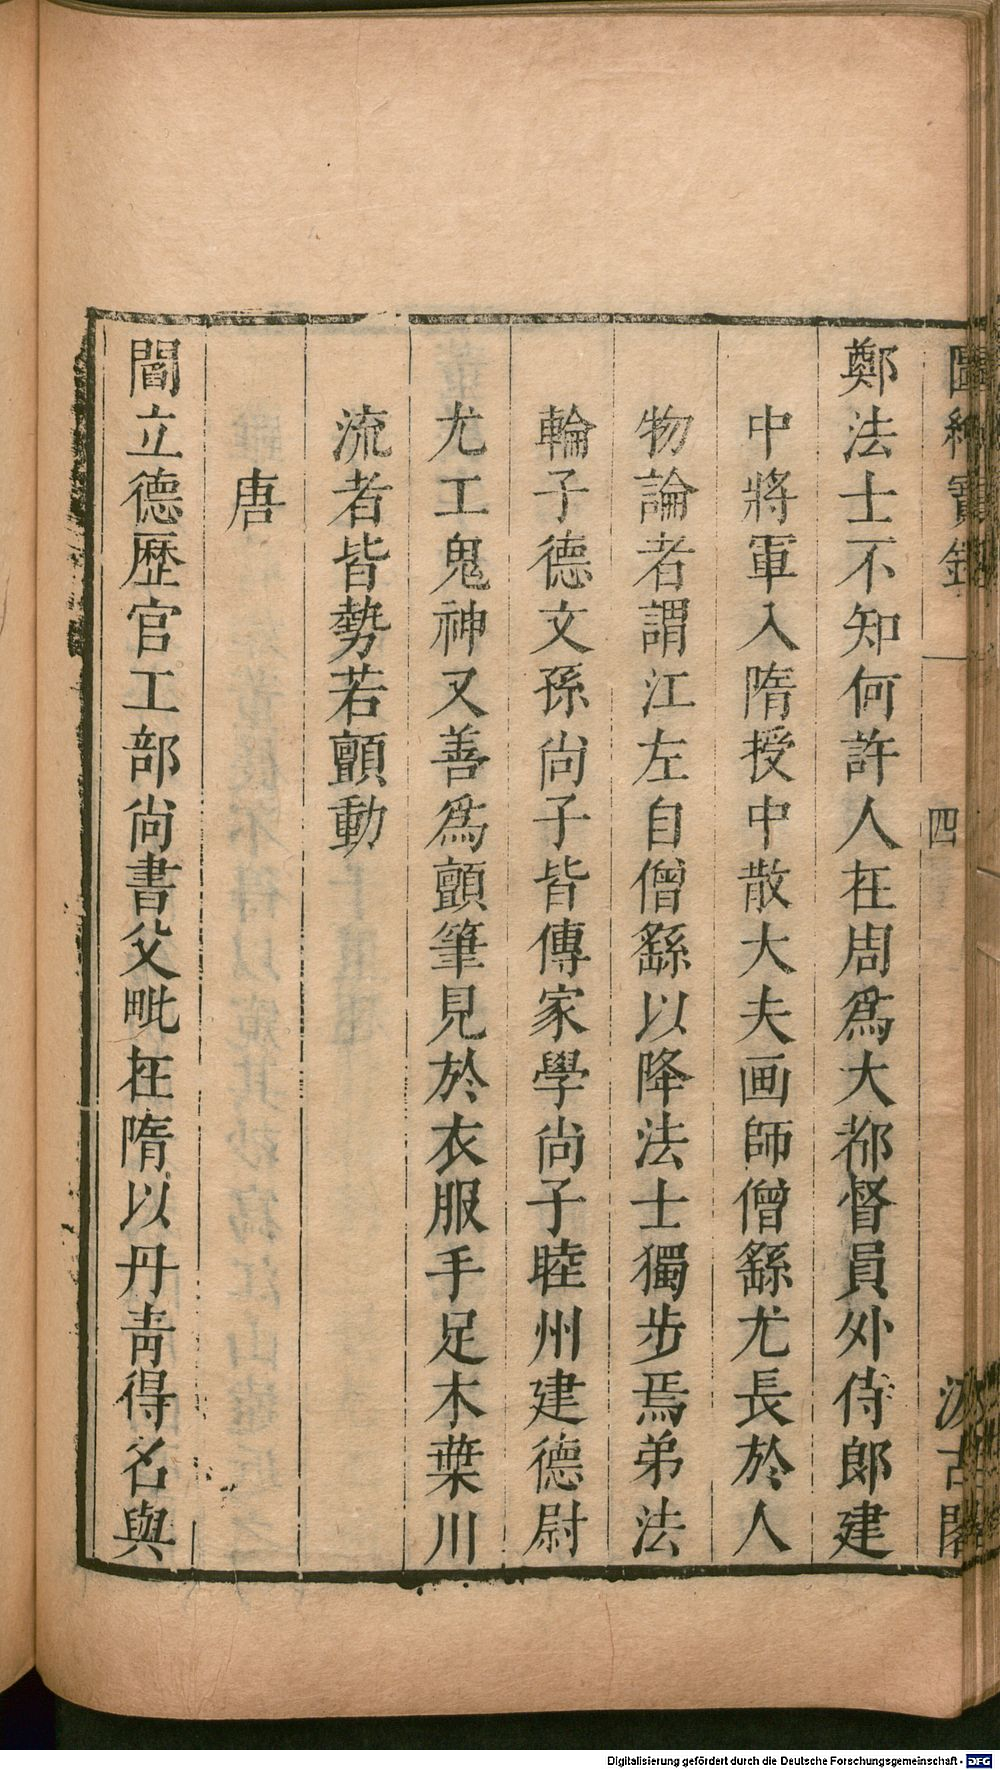 圖繪寶鑑 四 汲古閣
鄭法士不知何許人在周爲大都督員外侍郎建
中將軍入隋授中散大夫画師僧繇尤長於人
物論者謂江左自僧繇以降法士獨步焉弟法
輪子德文孫尚子皆傳家學尚子睦州建德尉
尤工鬼神又善爲顫筆見於衣服手足木葉川
流者皆勢若顫動
唐
閻立德歷官工部尚書父毗在隋以丹靑得名與
Digitalisierung gefördert durch die Deutsche Forschungsgemeinschaft - DFG